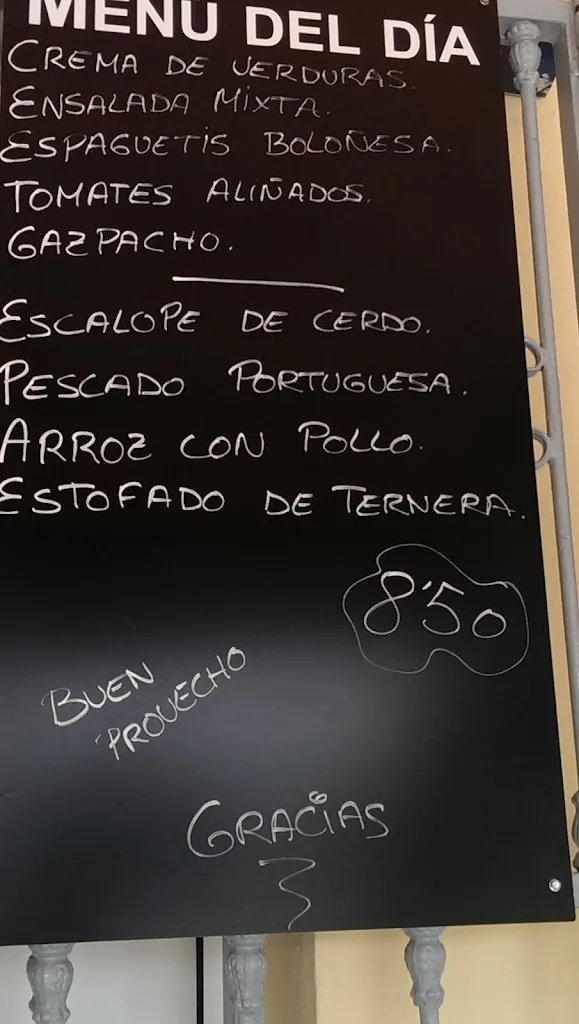 MENÚ DEL DÍA
CREMA DE VERDURAS.
ENSALADA MIXTA.
ESPAGUETIS BOLOÑESA.
TOMATES ALIÑADOS.
GAZPACHO.
ESCALOPE DE CERDO.
PESCADO PORTUGUESA.
ARROZ CON POLLO.
ESTOFADO DE TERNERA.
8'50
BUEN
PROVECHO
GRACIAS